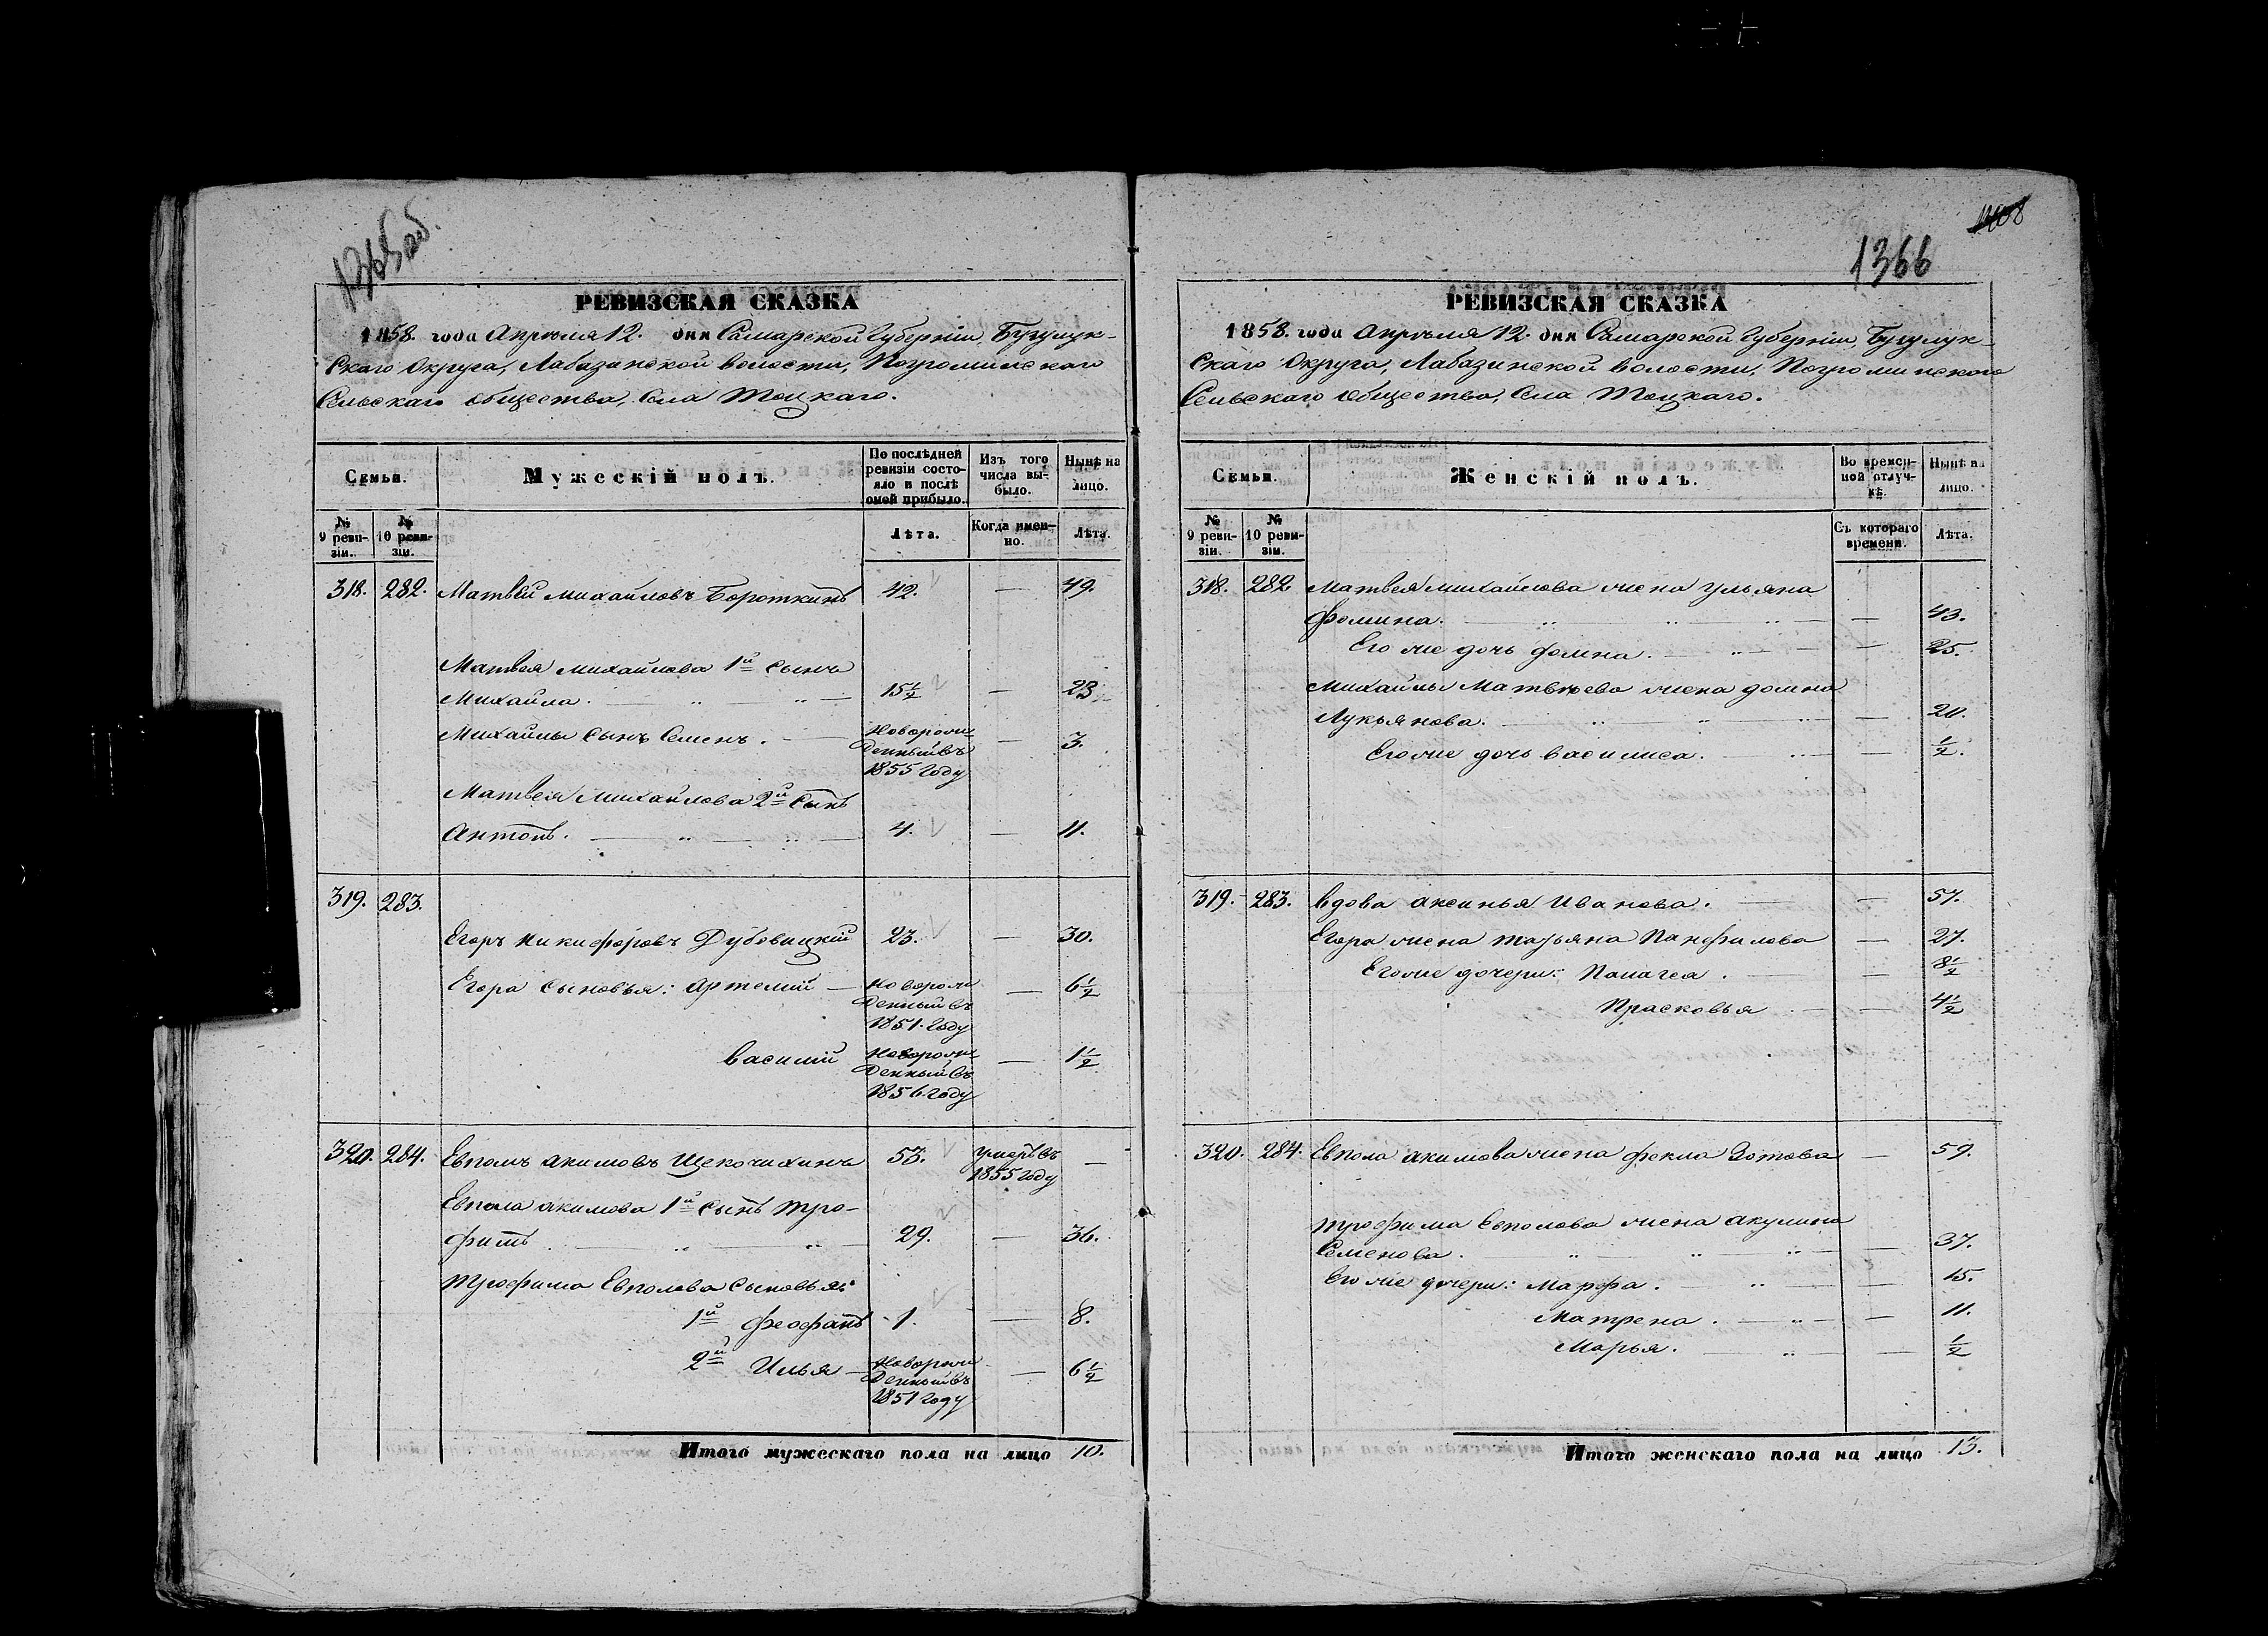 1365 об.
РЕВИЗСКАЯ СКАЗКА
1858. года Апрѣля 12. дня Самарской Губерніи, Бузулук-
скаго Округа, Лабазинской волости, Погроминскаго
Сельскаго общества, Села Тоцкаго.
Семьи. Мужескій полъ. По послѣдней ревизіи состояло и послѣ оной прибыло. Изъ того числа выбыло. Нынѣ на лицо.
№ 9 ревизіи. № 10 ревизіи. Лѣта. Когда именно. Лѣта.
318. 282. Матвей Михайловъ Бороткинъ 42. — 49.
Матвея Михайлова 1й сынъ
Михайла. 15½ — 23
Михайлы сынъ Семенъ. Новорож
денный въ — 3.
1855 году
Матвея Михайлова 2й сынъ
Антонъ. 4. — 11.
319. 283.
Егоръ Никифоровъ Дубовицкій 23. — 30.
Егора сыновья: Артемій — Новорож
денный въ — 6½
1851. году
Василій Новорож
денный въ — 1½
1856 году
320. 284. Евполъ Акимовъ Щекочихинъ 53. умеръ въ —
1855 году
Евпола Акимова 1й сынъ Тро-
фимъ 29. — 36.
Трофима Евполова сыновья:
1й Феофанъ 1. — 8.
2й Илья — Новорож
денный въ — 6½
1851 году
Итого мужескаго пола на лицо 10.
1366
РЕВИЗСКАЯ СКАЗКА
1858. года Апрѣля 12. дня Самарской Губерніи, Бузулук-
скаго Округа, Лабазинской волости, Погроминскаго
Сельскаго Общества, Села Тоцкаго.
Семьи. Женскій полъ. Во временной отлучкѣ. Нынѣ на лицо.
№ 9 ревизіи. № 10 ревизіи. Съ котораго времени. Лѣта.
318. 282 Матвея Михайлова жена Ульяна
Фомина. — 43.
Его же дочь Фемна. — 25.
Михайлы Матвѣева жена Домна
Лукьянова. — 20.
Его же дочь Василиса. — ½.
319. 283. Вдова Аксинья Иванова. — 57.
Егора жена Татьяна Панфилова — 27.
Его же дочери: Папагея. — 8½
Прасковья — 4½
320. 284. Евпола Акимова жена Фекла Зотова — 59.
Трофима Евполова жена Акулина
Семенова. — 37.
Его же дочери: Марфа. — 15.
Матрена. — 11.
Марья. — ½
Итого женскаго пола на лицо 13.